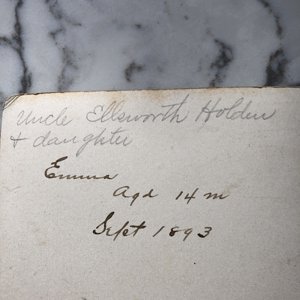 Uncle Ellsworth Holden
& daughter
Emma
Agd 14 m
Sept 1893